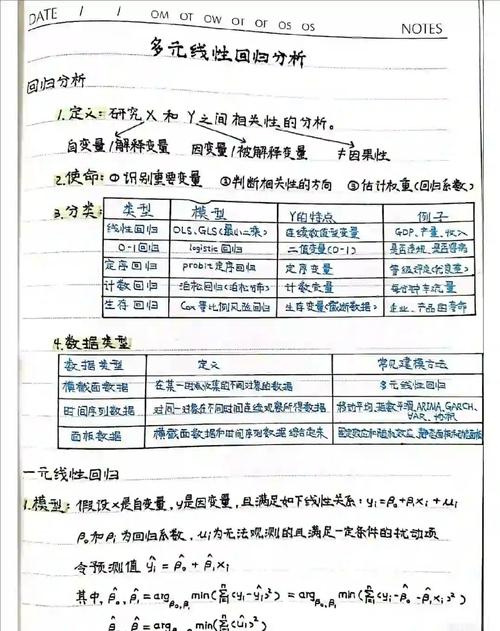 DATE / / OM OT OW OT OF OS OS NOTES
多元线性回归分析
回归分析
1.定义:研究X和Y之间相关性的分析。
自变量/解释变量 因变量/被解释变量 ≠因果性
2.使命:①识别重要变量 ②判断相关性的方向 ③估计权重(回归系数)
3.分类:
类型 模型 Y的特点 例子
线性回归 OLS、GLS(最小二乘) 连续数值型变量 GDP、产量、收入
0-1回归 logistic回归 二值变量(0-1) 是否违规、是否得病
定序回归 probit定序回归 定序变量 等级评定(优良差)
计数回归 泊松回归(泊松分布) 计数变量 每分钟车流量
生存回归 Cox等比例风险回归 生存变量(截断数据) 企业、产品的寿命
4.数据类型
数据类型 定义 常见建模方法
横截面数据 在某一时点收集的不同对象的数据 多元线性回归
时间序列数据 对同一对象在不同时间连续观察所得数据 移动平均、指数平滑、ARIMA、GARCH、
VAR、协积
面板数据 横截面数据和时间序列数据综合起来 固定效应和随机效应、静态面板和动态面板
一元线性回归
1.模型:假设x是自变量,y是因变量,且满足如下线性关系:yᵢ=β₀+β₁xᵢ+μᵢ
β₀和β₁为回归系数,μᵢ为无法观测的且满足一定条件的扰动项
令预测值 ŷᵢ=β̂₀+β̂₁xᵢ
其中,β̂₀,β̂₁=arg_{β₀,β₁} min(∑ⁿᵢ₌₁(yᵢ-ŷᵢ)²)=arg_{β₀,β₁} min(∑ⁿᵢ₌₁(yᵢ-β̂₀-β̂₁xᵢ)²)
β̂₀,β̂₁=arg min(∑(ûᵢ)²)